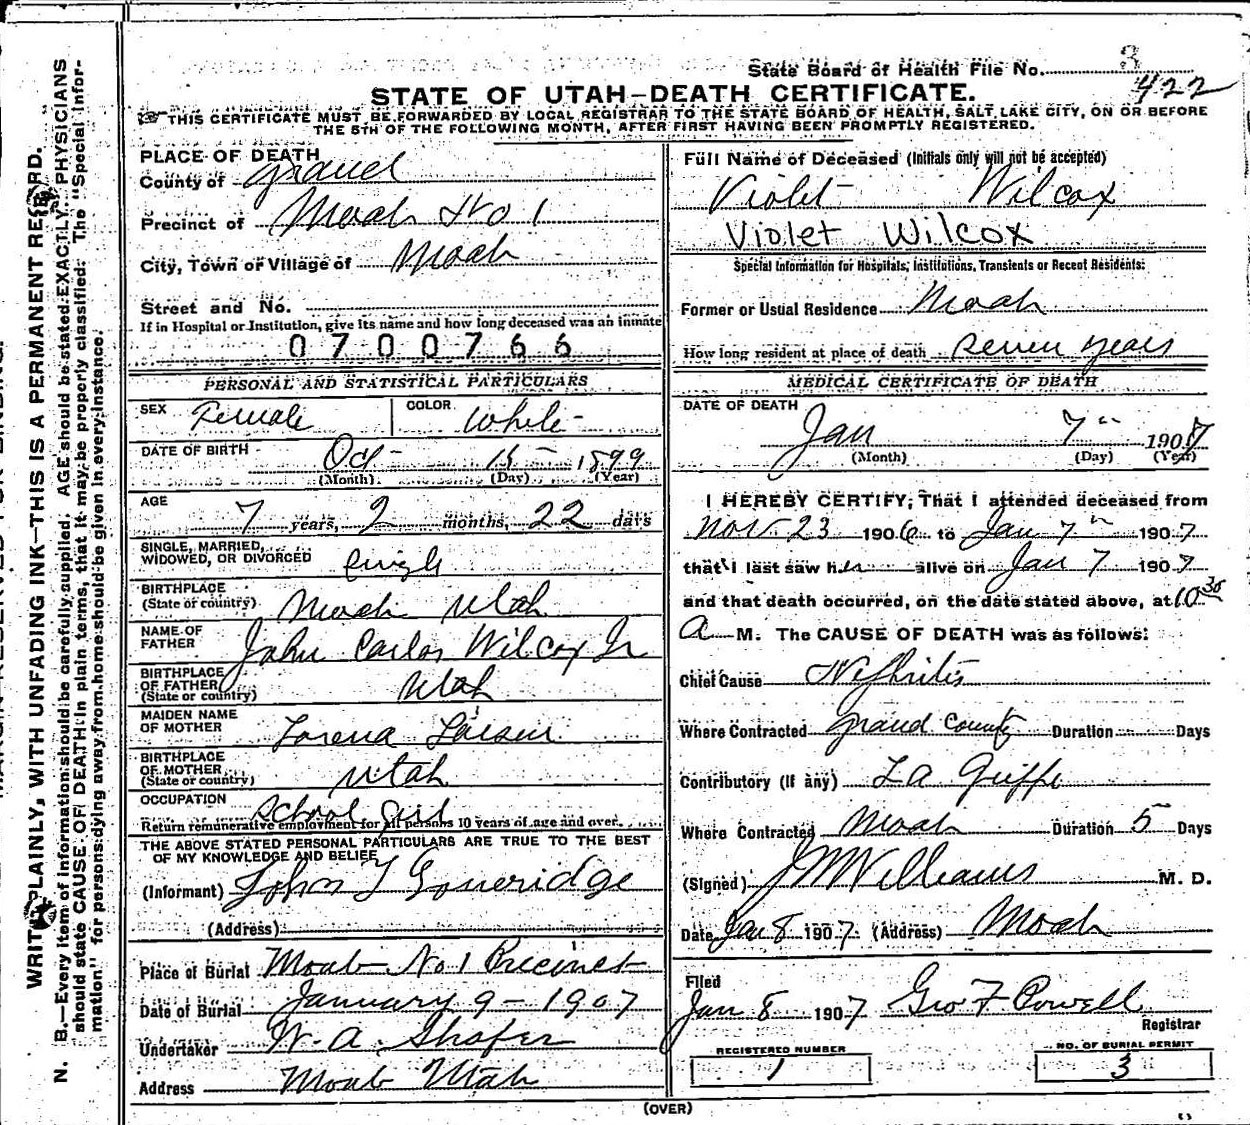 State Board of Health File No. 3
422
STATE OF UTAH—DEATH CERTIFICATE.
THIS CERTIFICATE MUST BE FORWARDED BY LOCAL REGISTRAR TO THE STATE BOARD OF HEALTH, SALT LAKE CITY, ON OR BEFORE
THE 5TH OF THE FOLLOWING MONTH, AFTER FIRST HAVING BEEN PROMPTLY REGISTERED.
PLACE OF DEATH
County of Grand
Precinct of Moab No 1
City, Town or Village of Moab
Street and No.
If in Hospital or Institution, give its name and how long deceased was an inmate
0700766
PERSONAL AND STATISTICAL PARTICULARS
SEX Female COLOR White
DATE OF BIRTH Oct 15 1899
(Month) (Day) (Year)
AGE 7 years, 2 months, 22 days
SINGLE, MARRIED,
WIDOWED, OR DIVORCED Single
BIRTHPLACE
(State or country) Moab Utah
NAME OF
FATHER John Carlos Wilcox Jr
BIRTHPLACE
OF FATHER
(State or country) Utah
MAIDEN NAME
OF MOTHER Lorena Larsen
BIRTHPLACE
OF MOTHER
(State or country) Utah
OCCUPATION School Girl
Return remunerative employment for all persons 10 years of age and over.
THE ABOVE STATED PERSONAL PARTICULARS ARE TRUE TO THE BEST
OF MY KNOWLEDGE AND BELIEF
(Informant) John T
(Address)
Place of Burial Moab No 1 Precinct
Date of Burial January 9 - 1907
Undertaker W. A. Shafer
Address Moab Utah
Full Name of Deceased (Initials only will not be accepted)
Violet Wilcox
Violet Wilcox
Special Information for Hospitals, Institutions, Transients or Recent Residents:
Former or Usual Residence Moab
How long resident at place of death Seven years
MEDICAL CERTIFICATE OF DEATH
DATE OF DEATH
Jan 7" 1907
(Month) (Day) (Year)
I HEREBY CERTIFY, That I attended deceased from
Nov. 23 1906 to Jan 7" 1907
that I last saw her alive on Jan 7 1907
and that death occurred, on the date stated above, at 10 30
A M. The CAUSE OF DEATH was as follows:
Chief Cause Nephritis
Where Contracted Grand County Duration Days
Contributory (If any) La Grippe
Where Contracted Moab Duration 5 Days
(Signed) J W Williams M. D.
Date Jan 8 1907 (Address) Moab
Filed
Jan 8 1907 Geo F Powell
Registrar
REGISTERED NUMBER
1
NO. OF BURIAL PERMIT
3
(OVER)
WRITE PLAINLY, WITH UNFADING INK—THIS IS A PERMANENT RECORD.
N. B.—Every item of information should be carefully supplied. AGE should be stated EXACTLY. PHYSICIANS
should state CAUSE OF DEATH in plain terms, that it may be properly classified. The "Special Infor-
mation" for persons dying away from home should be given in every instance.